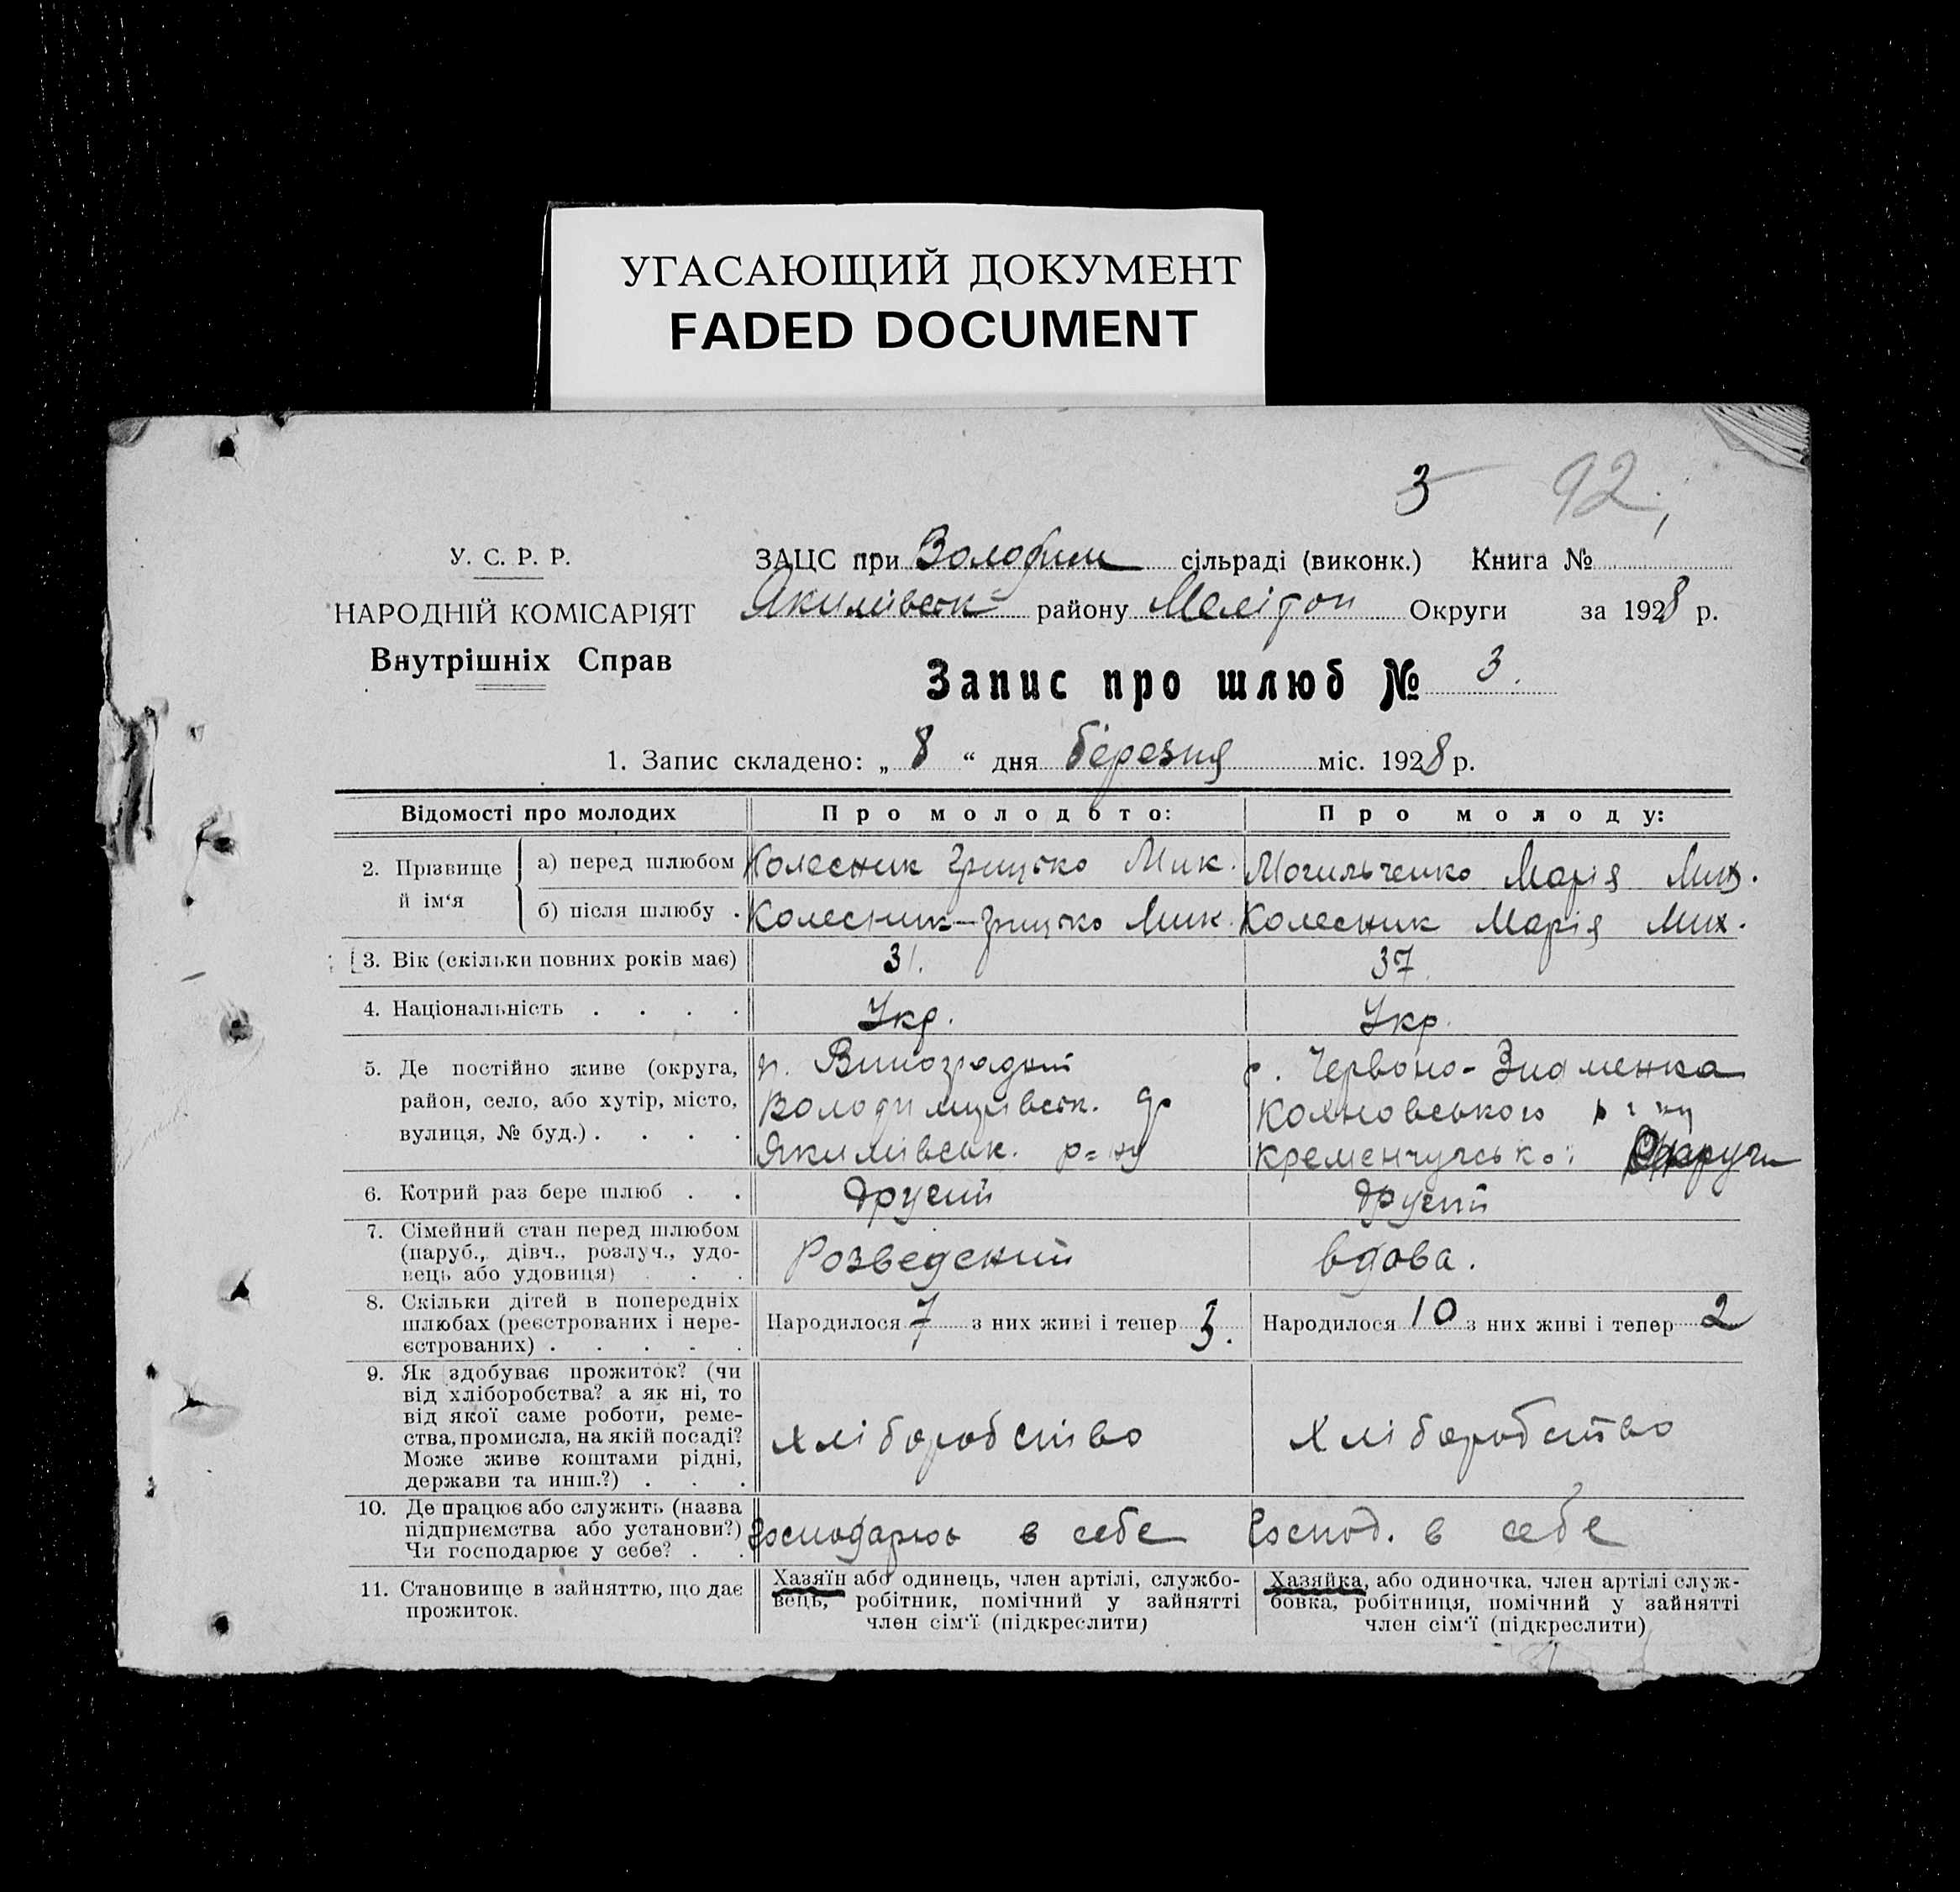 УГАСАЮЩИЙ ДОКУМЕНТ
FADED DOCUMENT
3 92
У. С. Р. Р.
НАРОДНІЙ КОМІСАРІЯТ
Внутрішніх Справ
ЗАЦС при сільраді (виконк.) Книга №
Якимівськ району Мелітоп Округи за 1928 р.
Запис про шлюб № 3.
1. Запис складено: „ 8 “ дня березня міс. 1928 р.
Відомості про молодих
Про молодого:
Про молоду:
2. Прізвище й ім‘я
а) перед шлюбом
Колесник Грицько Мик.
Могильченко Марія Мих.
б) після шлюбу .
Колесник-Грицько Мик.
Колесник Марія Мих.
3. Вік (скільки повних років має)
31.
37.
4. Національність . . . .
Укр.
Укр.
5. Де постійно живе (округа,
район, село, або хутір, місто,
вулиця, № буд.) . . . .
Виноградний
Володимирівськ.
Якимівськ. р=ну
с. Червоно-Знаменка
р-ну
Кременчугської Округи
6. Котрий раз бере шлюб . .
другий
другий
7. Сімейний стан перед шлюбом
(паруб., дівч., розлуч., удо-
вець або удовиця) . . .
Розведений
вдова.
8. Скільки дітей в попередніх
шлюбах (реєстрованих і нере-
єстрованих) . . . . .
Народилося 7 з них живі і тепер 3.
Народилося 10 з них живі і тепер 2
9. Як здобуває прожиток? (чи
від хліборобства? а як ні, то
від якої саме роботи, реме-
ства, промисла, на якій посаді?
Може живе коштами рідні,
держави та инш.?) . . .
хліборобство
хліборобство
10. Де працює або служить (назва
підприємства або установи?)
Чи господарює у себе? . .
Господарює в себе
Господ. в себе
11. Становище в зайняттю, що дає
прожиток.
Хазяїн або одинець, член артілі, службо-
вець, робітник, помічний у зайнятті
член сім‘ї (підкреслити)
Хазяйка, або одиночка, член артілі служ-
бовка, робітниця, помічний у зайнятті
член сім‘ї (підкреслити)